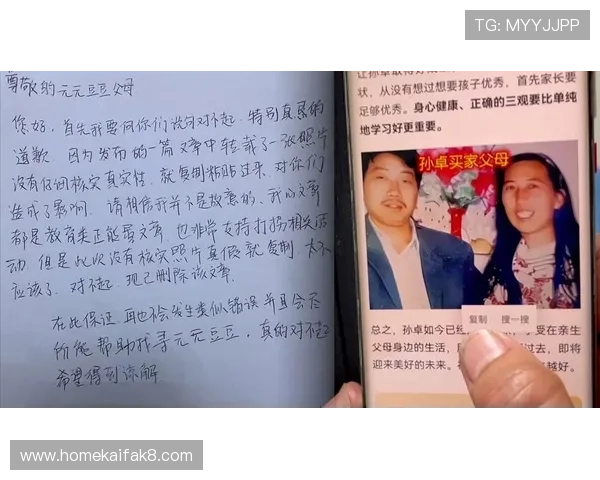 TG: MYYJJPP
尊敬的元元豆豆父母
您好，首先我要向你们说句对不起，特别真恳的
道歉，因为发布的一篇文章中转载了一张照片
没有仔细核实真实性，就复制粘贴过来，对你们
造成了影响，请相信我并不是故意的，我的文章
都是教育类正能量文章，也非常支持打拐相关活
动，但是此次没有核实照片真假就复制，太不
应该了，对不起，现已删除该文章。
在此保证，再也不会发生类似错误并且会尽
所能帮助找寻元元豆豆，真的对不起
希望得到谅解
让孙卓取得好成
状，从没有想过想要孩子优秀，首先家长要
足够优秀。身心健康、正确的三观要比单纯
地学习好更重要。
孙卓买家父母
复制 搜一搜
总之，孙卓如今已经 受在亲生
父母身边的生活， 过去，即将
迎来美好的未来。 越好。
www.homekaifak8.com